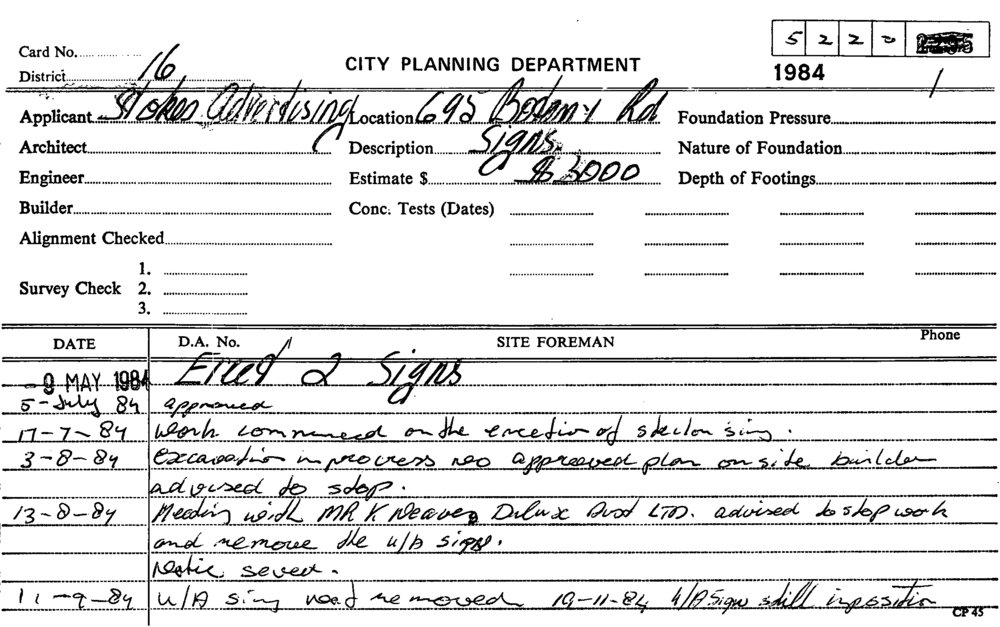 5 2 2 0
Card No.
District 16
CITY PLANNING DEPARTMENT
1984
1
Applicant Stokes Advertising Location 695 Botany Rd Foundation Pressure
Architect Description Signs. Nature of Foundation
Engineer Estimate $ $ 3000 Depth of Footings
Builder Conc. Tests (Dates)
Alignment Checked
1.
Survey Check 2.
3.
DATE D.A. No. SITE FOREMAN Phone
- 9 MAY 1984 Erect 2 Signs
5-July 84 approved
17-7-84 work commneced on the erection of sing.
3-8-84 Excavation in process no approved plan on site builder
advised to stop.
13-8-84 Meeting with MR K Weaver Dulux Aust LTD. advised to stop work
and remove the u/A signs.
Notic seved.
11-9-84 U/A sing removed 19-11-84 U/A Sign still in possition
CP 45